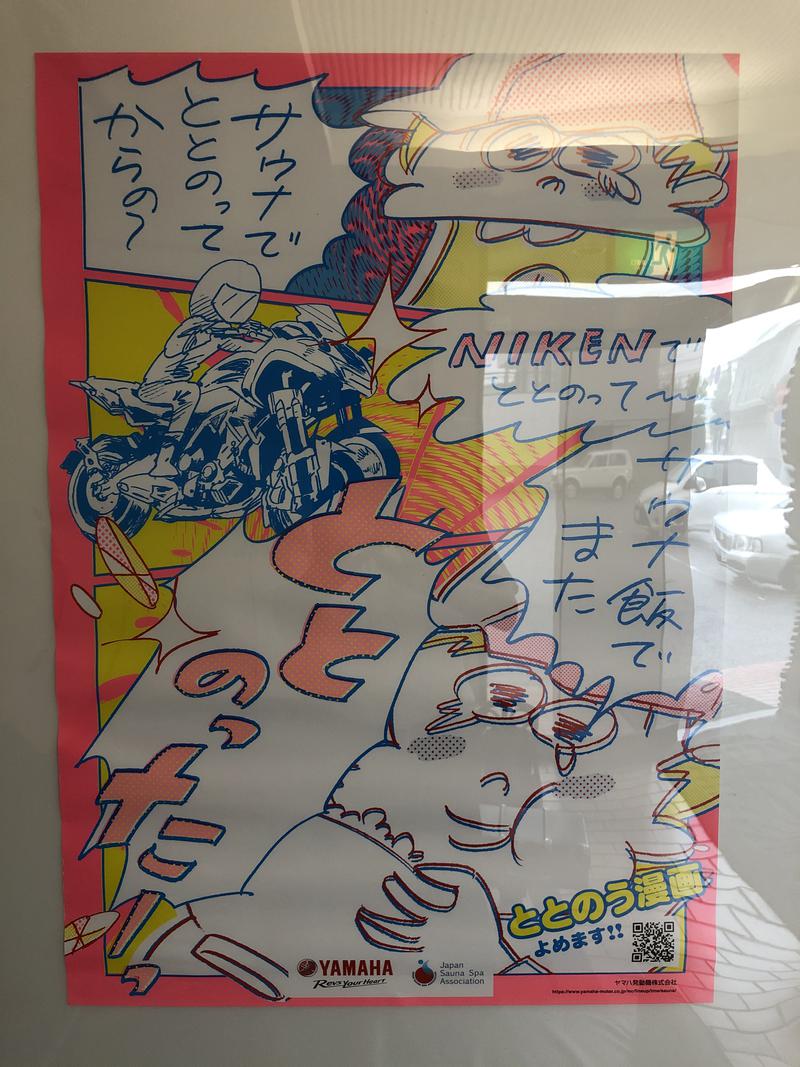 サウナで
ととのって
からの?
NIKENで
ととのって〜〜
サウナ飯で
また
とと
のっ
たーっ
ととのう漫画
よめます!!
YAMAHA
Revs Your Heart
Japan
Sauna Spa
Association
ヤマハ発動機株式会社